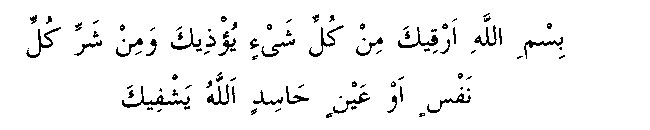 بِسْمِ اللَّهِ اَرْقِيكَ مِنْ كُلِّ شَىْءٍ يُؤْذِيكَ وَمِنْ شَرِّ كُلِّ
نَفْسٍ اَوْ عَيْنٍ حَاسِدٍ اَللَّهُ يَشْفِيكَ